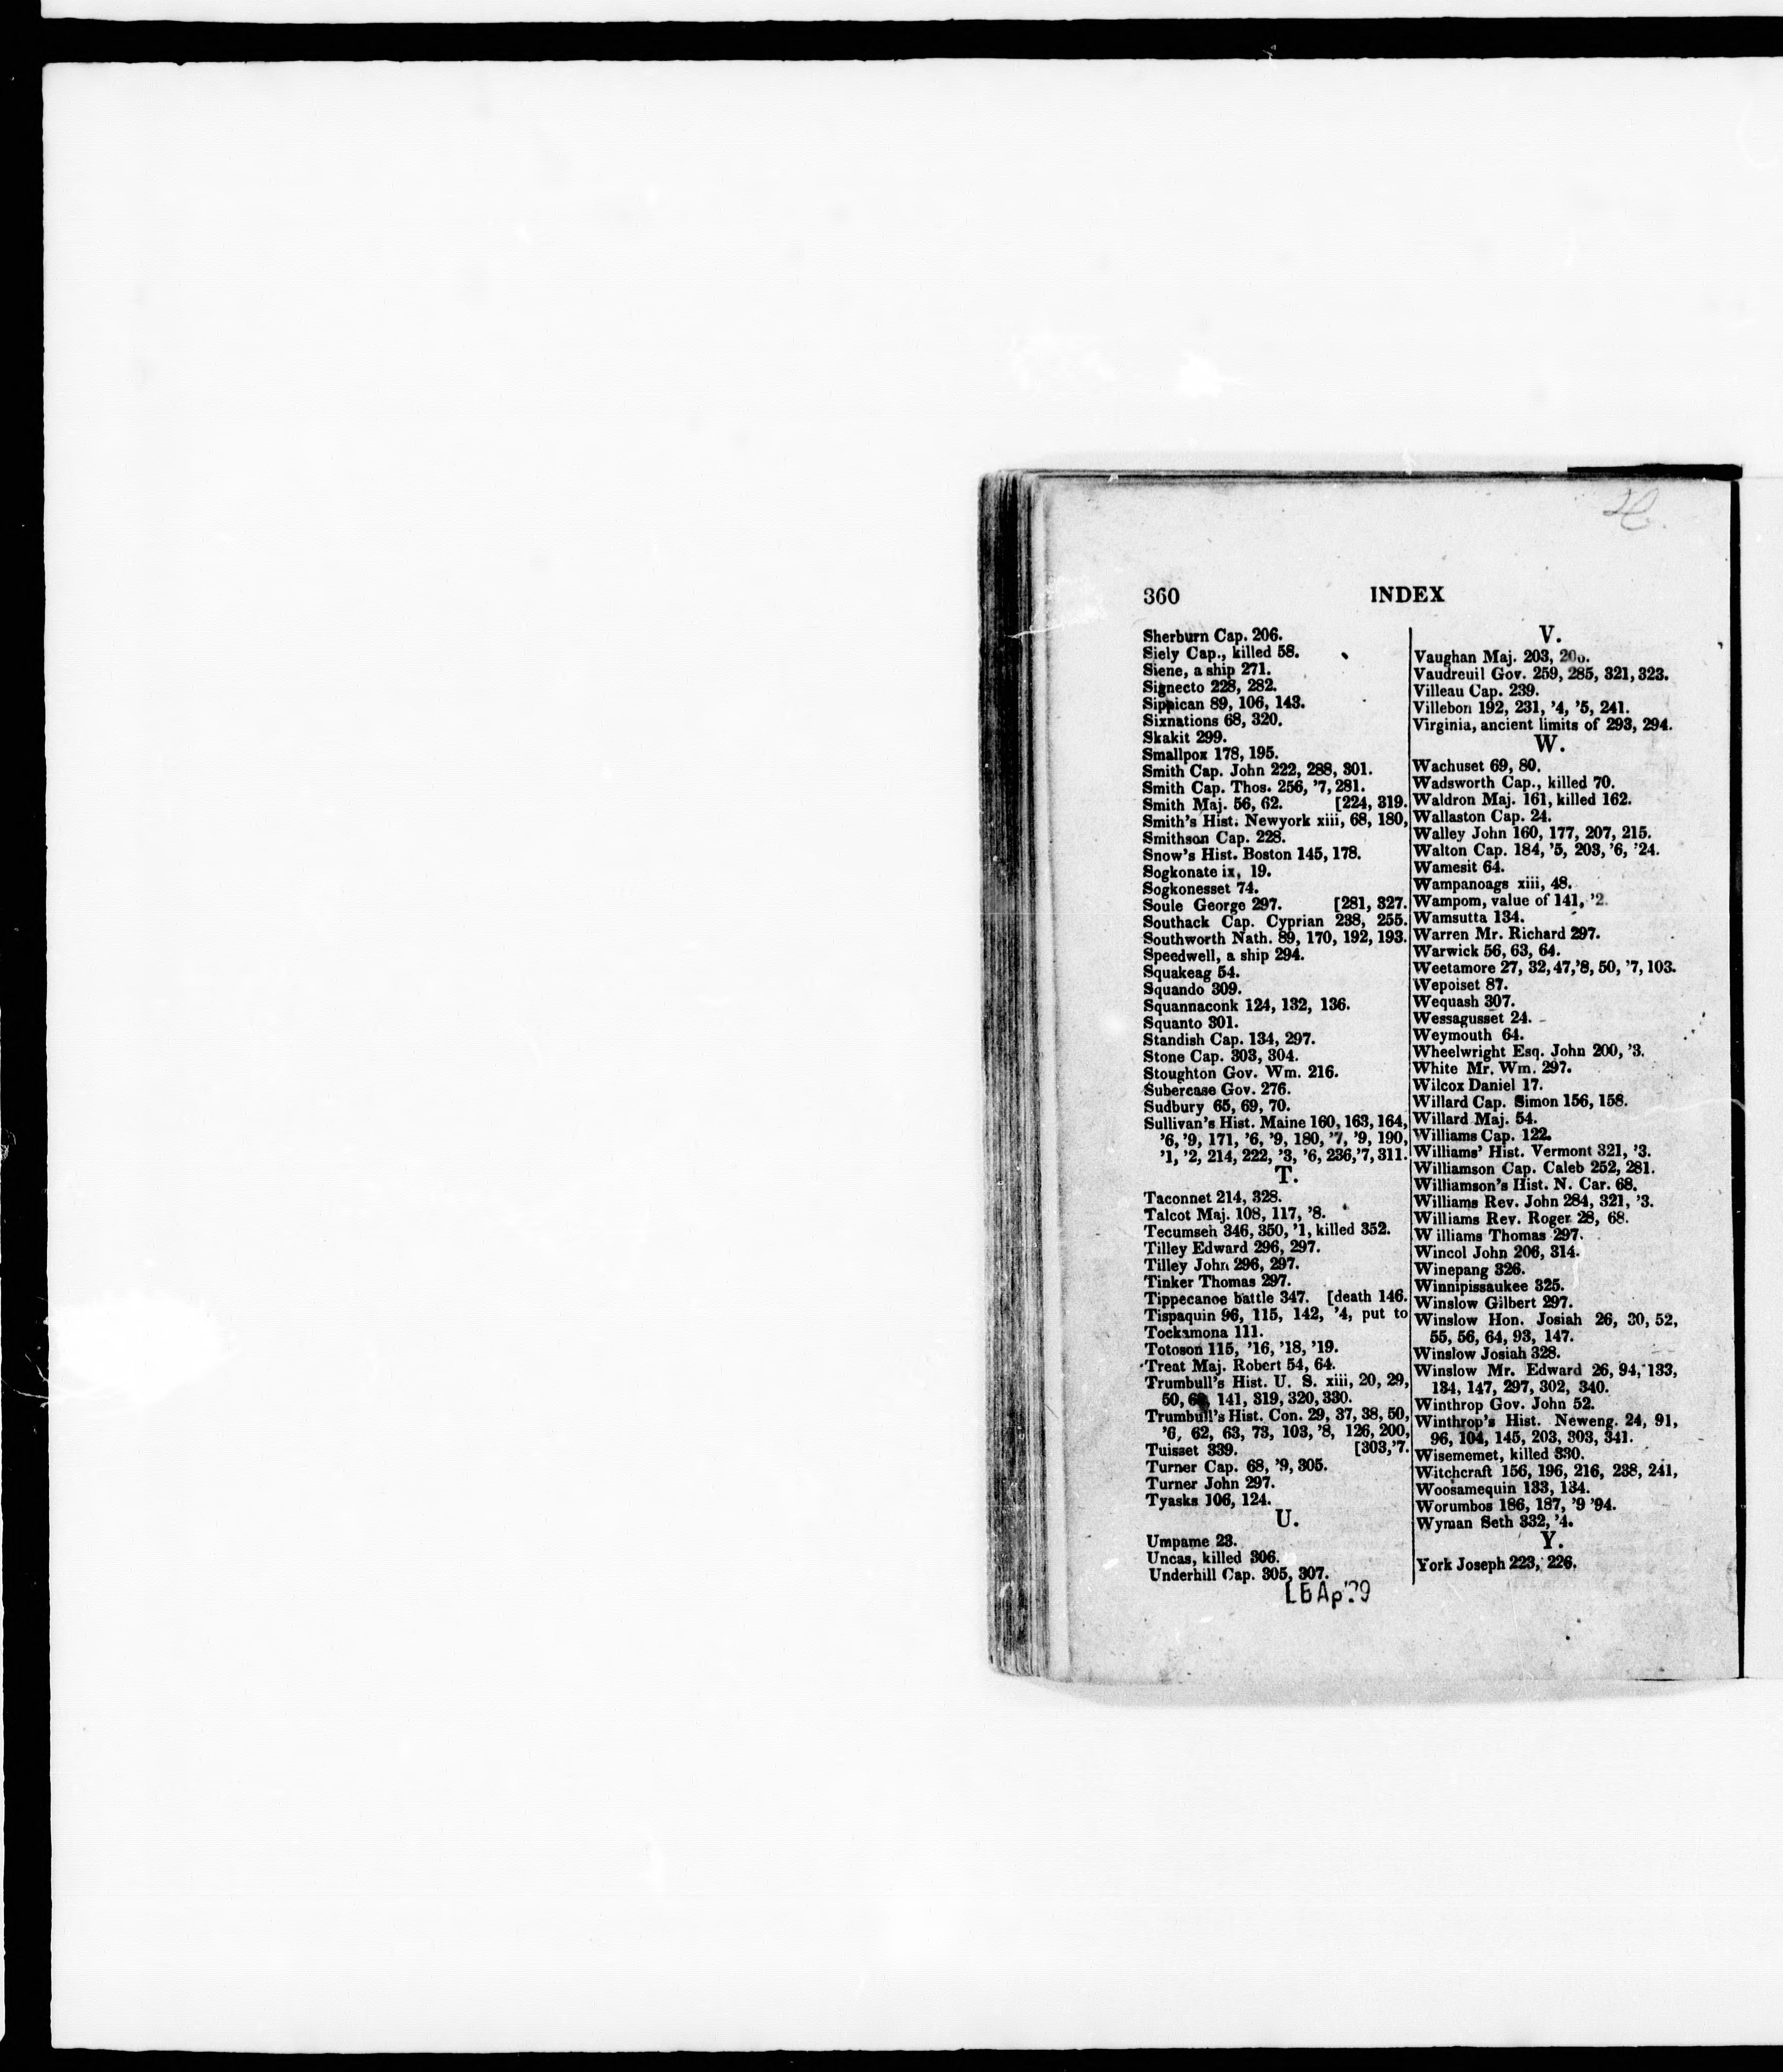 360 INDEX
Sherburn Cap. 206.
Siely Cap., killed 58.
Siene, a ship 271.
Signecto 228, 282.
Sippican 89, 106, 143.
Sixnations 68, 320.
Skakit 299.
Smallpox 178, 195.
Smith Cap. John 222, 288, 301.
Smith Cap. Thos. 256, '7, 281.
Smith Maj. 56, 62. [224, 319.
Smith's Hist. Newyork xiii, 68, 180,
Smithson Cap. 228.
Snow's Hist. Boston 145, 178.
Sogkonate ix, 19.
Sogkonesset 74.
Soule George 297. [281, 327.
Southack Cap. Cyprian 238, 255.
Southworth Nath. 89, 170, 192, 193.
Speedwell, a ship 294.
Squakeag 54.
Squando 309.
Squannaconk 124, 132, 136.
Squanto 301.
Standish Cap. 134, 297.
Stone Cap. 303, 304.
Stoughton Gov. Wm. 216.
Subercase Gov. 276.
Sudbury 65, 69, 70.
Sullivan's Hist. Maine 160, 163, 164,
'6, '9, 171, '6, '9, 180, '7, '9, 190,
'1, '2, 214, 222, '3, '6, 236,'7, 311.
T.
Taconnet 214, 328.
Talcot Maj. 108, 117, '8.
Tecumseh 346, 350, '1, killed 352.
Tilley Edward 296, 297.
Tilley John 296, 297.
Tinker Thomas 297.
Tippecanoe battle 347. [death 146.
Tispaquin 96, 115, 142, '4, put to
Tockamona 111.
Totoson 115, '16, '18, '19.
Treat Maj. Robert 54, 64.
Trumbull's Hist. U. S. xiii, 20, 29,
50, 141, 319, 320, 330.
Trumbull's Hist. Con. 29, 37, 38, 50,
'6, 62, 63, 73, 103, '8, 126, 200,
Tuisset 339. [303,'7.
Turner Cap. 68, '9, 305.
Turner John 297.
Tyasks 106, 124.
U.
Umpame 23.
Uncas, killed 306.
Underhill Cap. 305, 307.
V.
Vaughan Maj. 203,
Vaudreuil Gov. 259, 285, 321, 323.
Villeau Cap. 239.
Villebon 192, 231, '4, '5, 241.
Virginia, ancient limits of 293, 294.
W.
Wachuset 69, 80.
Wadsworth Cap., killed 70.
Waldron Maj. 161, killed 162.
Wallaston Cap. 24.
Walley John 160, 177, 207, 215.
Walton Cap. 184, '5, 203, '6, '24.
Wamesit 64.
Wampanoags xiii, 48.
Wampom, value of 141, '2.
Wamsutta 134.
Warren Mr. Richard 297.
Warwick 56, 63, 64.
Weetamore 27, 32, 47,'8, 50, '7, 103.
Wepoiset 87.
Wequash 307.
Wessagusset 24.
Weymouth 64.
Wheelwright Esq. John 200, '3.
White Mr. Wm. 297.
Wilcox Daniel 17.
Willard Cap. Simon 156, 158.
Willard Maj. 54.
Williams Cap. 122.
Williams' Hist. Vermont 321, '3.
Williamson Cap. Caleb 252, 281.
Williamson's Hist. N. Car. 68.
Williams Rev. John 284, 321, '3.
Williams Rev. Roger 28, 68.
Williams Thomas 297.
Wincol John 206, 314.
Winepang 326.
Winnipissaukee 325.
Winslow Gilbert 297.
Winslow Hon. Josiah 26, 30, 52,
55, 56, 64, 93, 147.
Winslow Josiah 328.
Winslow Mr. Edward 26, 94, 133,
134, 147, 297, 302, 340.
Winthrop Gov. John 52.
Winthrop's Hist. Neweng. 24, 91,
96, 104, 145, 203, 303, 341.
Wisememet, killed 330.
Witchcraft 156, 196, 216, 238, 241,
Woosamequin 133, 134.
Worumbos 186, 187, '9 '94.
Wyman Seth 332, '4.
Y.
York Joseph 223, 226.